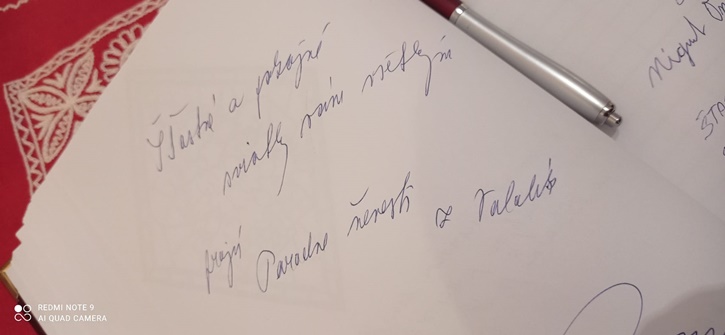 Šťastné a pokojné
sviatky vám všetkým
prajú Parádne nevesti z Valalík
Migut
ŠTA
REDMI NOTE 9
AI QUAD CAMERA